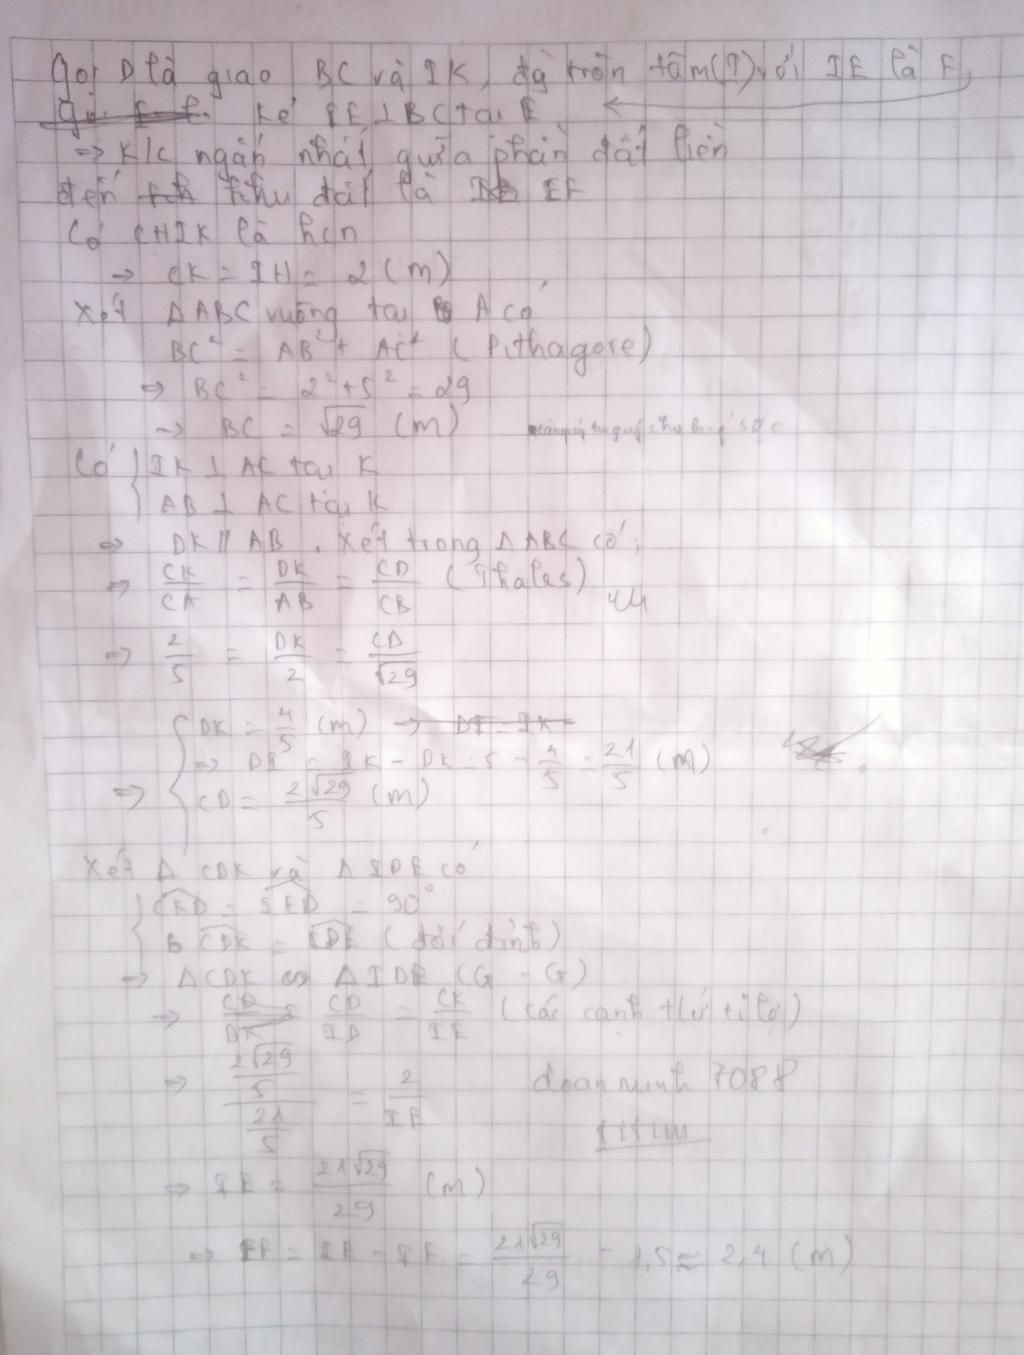 Gọi D là giao BC và IK, đg tròn tâm (I) với IE là F,
Kẻ IE ⊥ BC tại E
=> K/c ngắn nhất giữa phần đất liền
đến khu đất là EF
Có CHIK là hcn
-> CK = IH = 2 (m)
Xét ΔABC vuông tại A có
BC² = AB² + AC² (Pithagore)
=> BC² = 2² + 5² = 29
-> BC = √29 (m)
Có { IK ⊥ AC tại K
AB ⊥ AC tại K
=> DK // AB. Xét trong ΔABC có;
=> CK/CA = DK/AB = CD/CB (Thales)
=> 2/5 = DK/2 = CD/√29
=> { DK = 4/5 (m)
=> DI = IK - DK = 5 - 4/5 = 21/5 (m)
CD = 2√29/5 (m)
Xét Δ CDK và Δ IDE có
{ CKD = IED = 90°
CDK = IDE (đối đỉnh)
-> ΔCDK ∽ ΔIDE (G - G)
-> CD/ID = CK/IE (các cạnh t/ứ tỉ lệ)
=> (2√29/5)/(21/5) = 2/IE doanminh 7088
=> IE = 21√29/29 (m)
=> EF = IE - IF = 21√29/29 - 1,5 ≈ 2,4 (m)